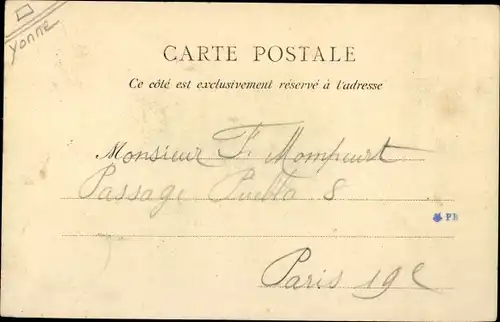 Yonne
CARTE POSTALE
Ce côté est exclusivement réservé à l'adresse
Monsieur F. Mompeurt
Passage Puebla 8
PB
Paris 19e